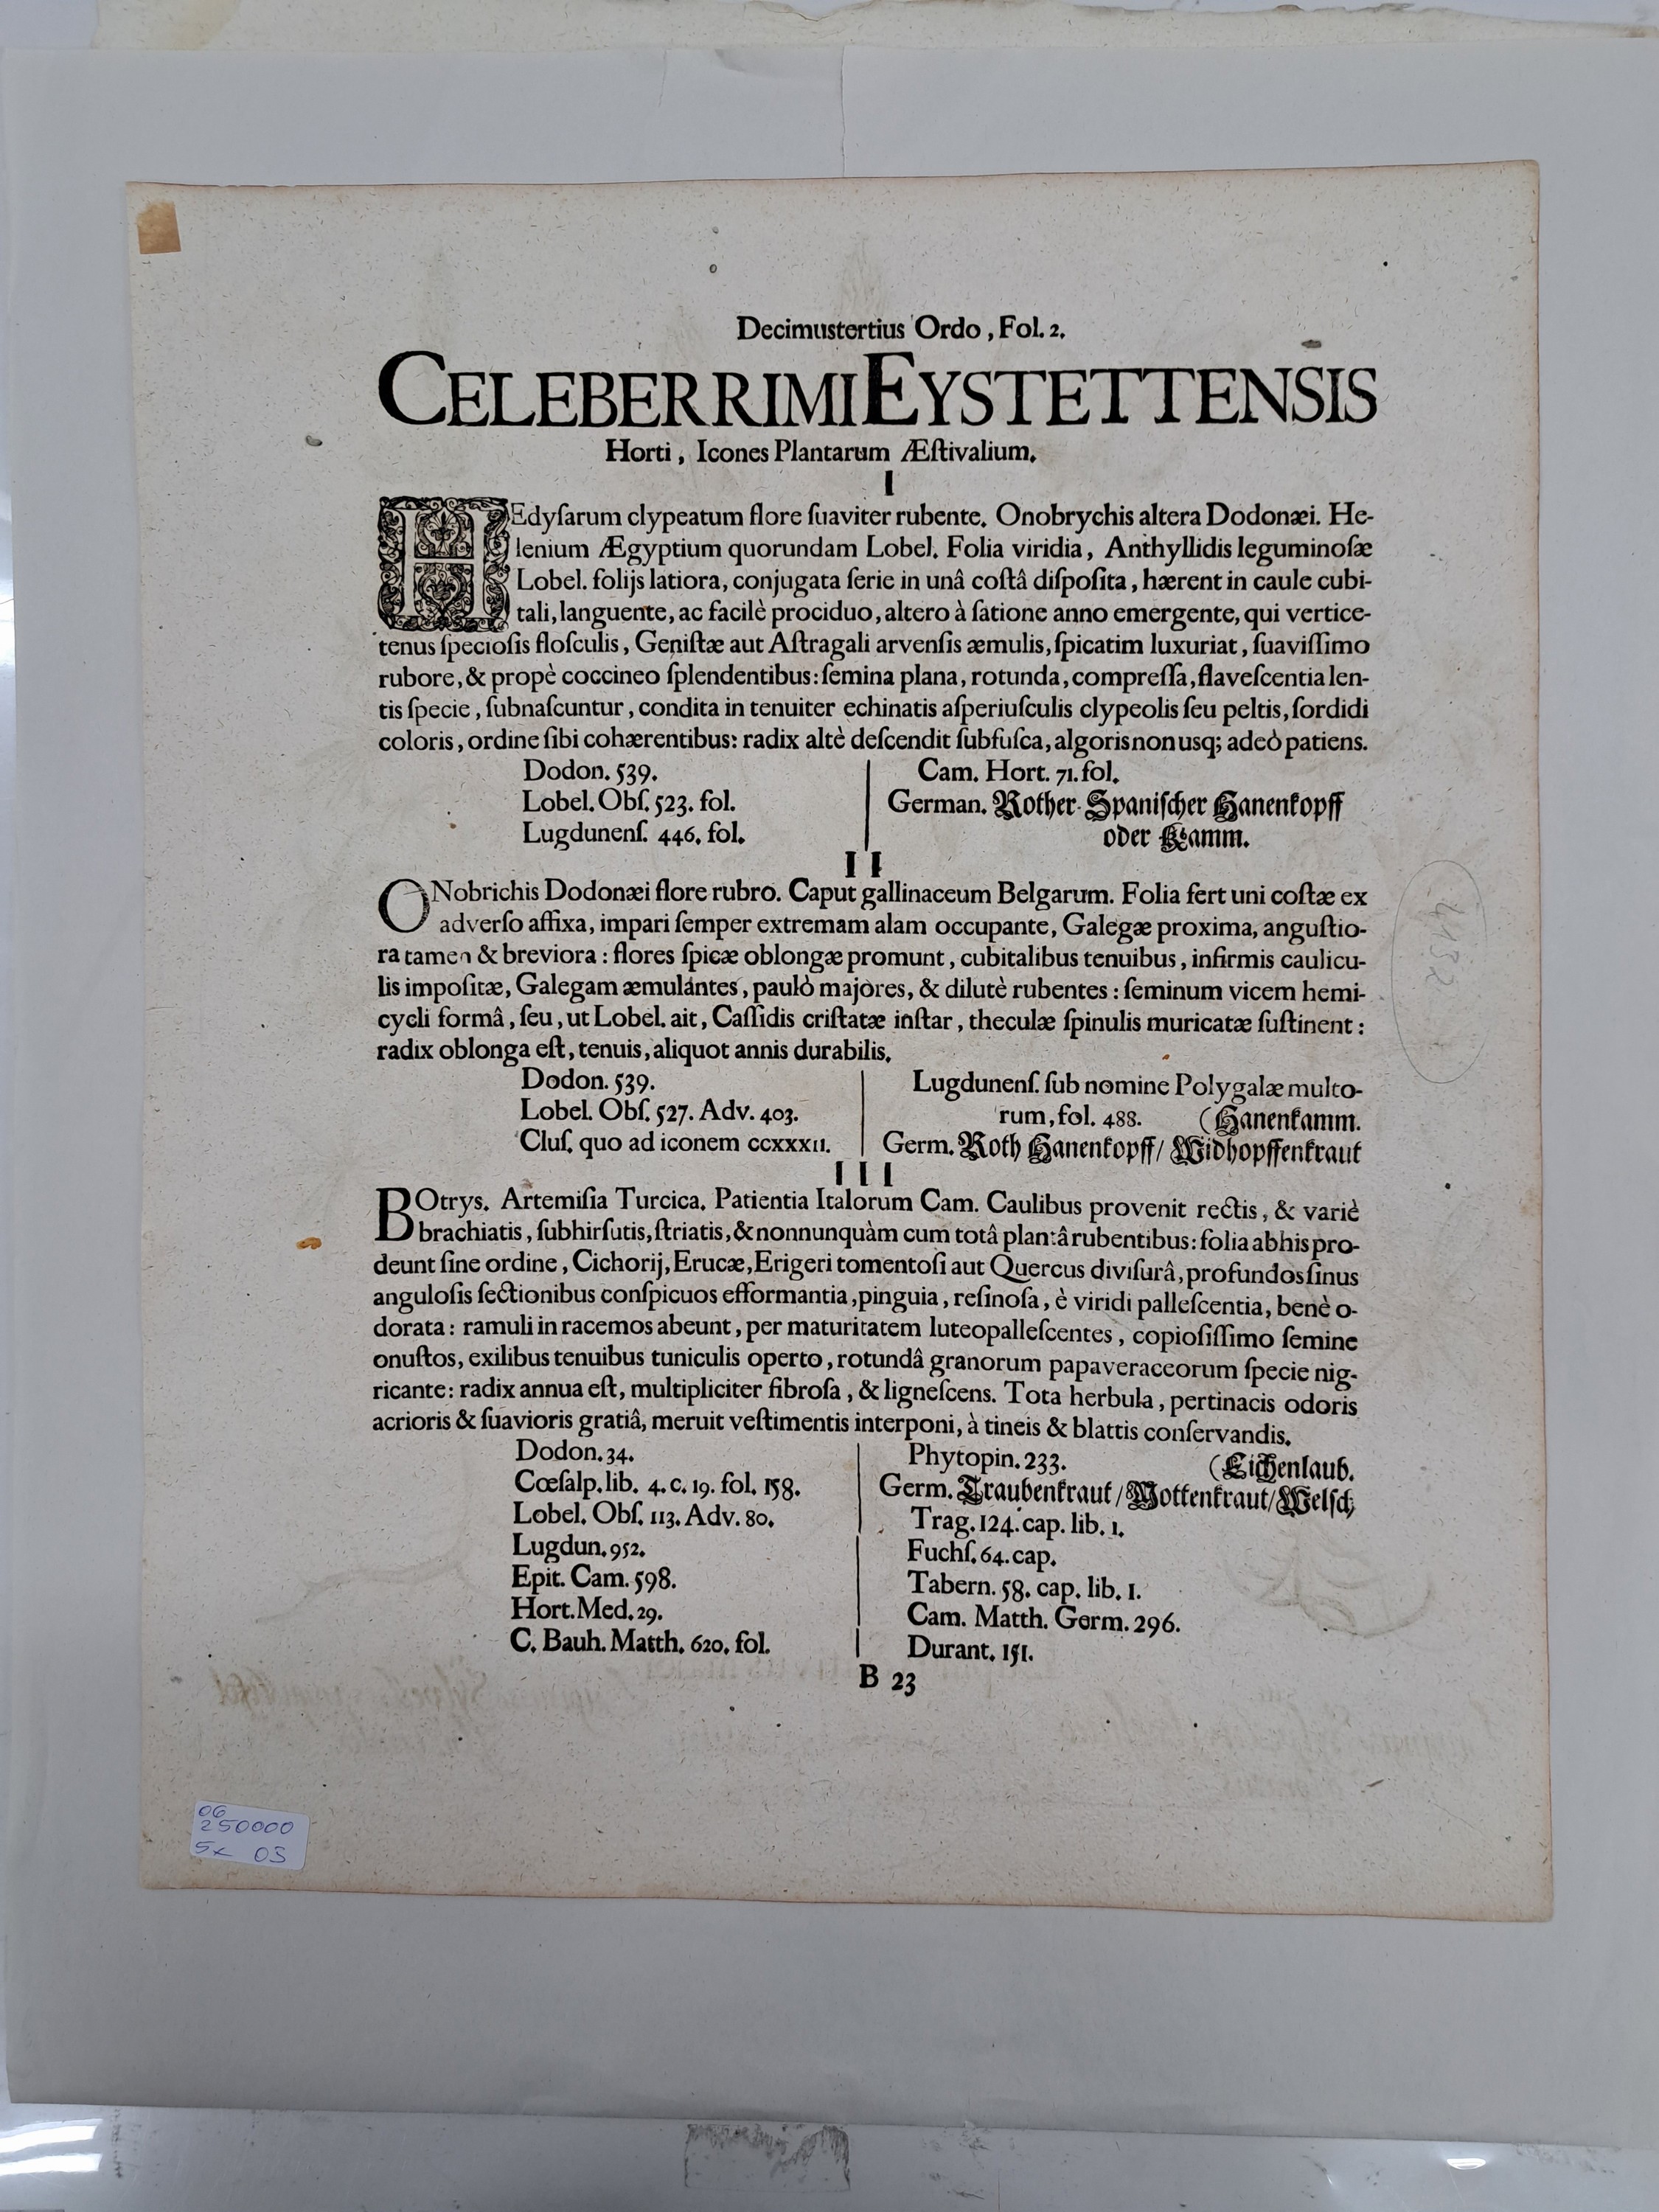 Decimustertius Ordo, Fol. 2.
CELEBERRIMI EYSTETTENSIS
Horti, Icones Plantarum Æſtivalium.
I
HEdyſarum clypeatum flore ſuaviter rubente. Onobrychis altera Dodonæi. He-
lenium Ægyptium quorundam Lobel. Folia viridia, Anthyllidis leguminoſæ
Lobel. folijs latiora, conjugata ſerie in unâ coſtâ diſpoſita, hærent in caule cubi-
tali, languente, ac facilè prociduo, altero à ſatione anno emergente, qui vertice-
tenus ſpecioſis floſculis, Geniſtæ aut Aſtragali arvenſis æmulis, ſpicatim luxuriat, ſuaviſſimo
rubore, & propè coccineo ſplendentibus: ſemina plana, rotunda, compreſſa, flaveſcentia len-
tis ſpecie, ſubnaſcuntur, condita in tenuiter echinatis aſperiuſculis clypeolis ſeu peltis, ſordidi
coloris, ordine ſibi cohærentibus: radix altè deſcendit ſubfuſca, algoris non usq; adeò patiens.
Dodon. 539.
Lobel. Obſ. 523. fol.
Lugdunenſ. 446. fol.
Cam. Hort. 71. fol.
German. Rother Spaniſcher Hanenkopff
oder Kamm.
II
ONobrichis Dodonæi flore rubro. Caput gallinaceum Belgarum. Folia fert uni coſtæ ex
adverſo affixa, impari ſemper extremam alam occupante, Galegæ proxima, anguſtio-
ra tamen & breviora: flores ſpicæ oblongæ promunt, cubitalibus tenuibus, infirmis caulicu-
lis impoſitæ, Galegam æmulantes, paulò majores, & dilutè rubentes: ſeminum vicem hemi-
cycli formâ, ſeu, ut Lobel. ait, Caſſidis criſtatæ inſtar, theculæ ſpinulis muricatæ ſuſtinent:
radix oblonga eſt, tenuis, aliquot annis durabilis.
Dodon. 539.
Lobel. Obſ. 527. Adv. 403.
Cluſ. quo ad iconem CCXXXII.
Lugdunenſ. ſub nomine Polygalæ multo-
rum, fol. 488. (Hanenkamm.
Germ. Roth Hanenkopff/ Widhopffenkraut
III
BOtrys. Artemiſia Turcica. Patientia Italorum Cam. Caulibus provenit rectis, & variè
brachiatis, ſubhirſutis, ſtriatis, & nonnunquàm cum totâ plantâ rubentibus: folia ab his pro-
deunt ſine ordine, Cichorij, Erucæ, Erigeri tomentoſi aut Quercus diviſurâ, profundos ſinus
anguloſis ſectionibus conſpicuos efformantia, pinguia, reſinoſa, è viridi palleſcentia, benè o-
dorata: ramuli in racemos abeunt, per maturitatem luteopalleſcentes, copioſiſſimo ſemine
onuſtos, exilibus tenuibus tuniculis operto, rotundâ granorum papaveraceorum ſpecie nig-
ricante: radix annua eſt, multipliciter fibroſa, & ligneſcens. Tota herbula, pertinacis odoris
acrioris & ſuavioris gratiâ, meruit veſtimentis interponi, à tineis & blattis conſervandis.
Dodon. 34.
Cœſalp. lib. 4. c. 19. fol. 158.
Lobel. Obſ. 113. Adv. 80.
Lugdun. 952.
Epit. Cam. 598.
Hort. Med. 29.
C. Bauh. Matth. 620. fol.
Phytopin. 233. (Eichenlaub.
Germ. Traubenkraut/ Mottenkraut/ Welſch
Trag. 124. cap. lib. 1.
Fuchſ. 64. cap.
Tabern. 58. cap. lib. 1.
Cam. Matth. Germ. 296.
Durant. 151.
B 23
06
250000
5x 05